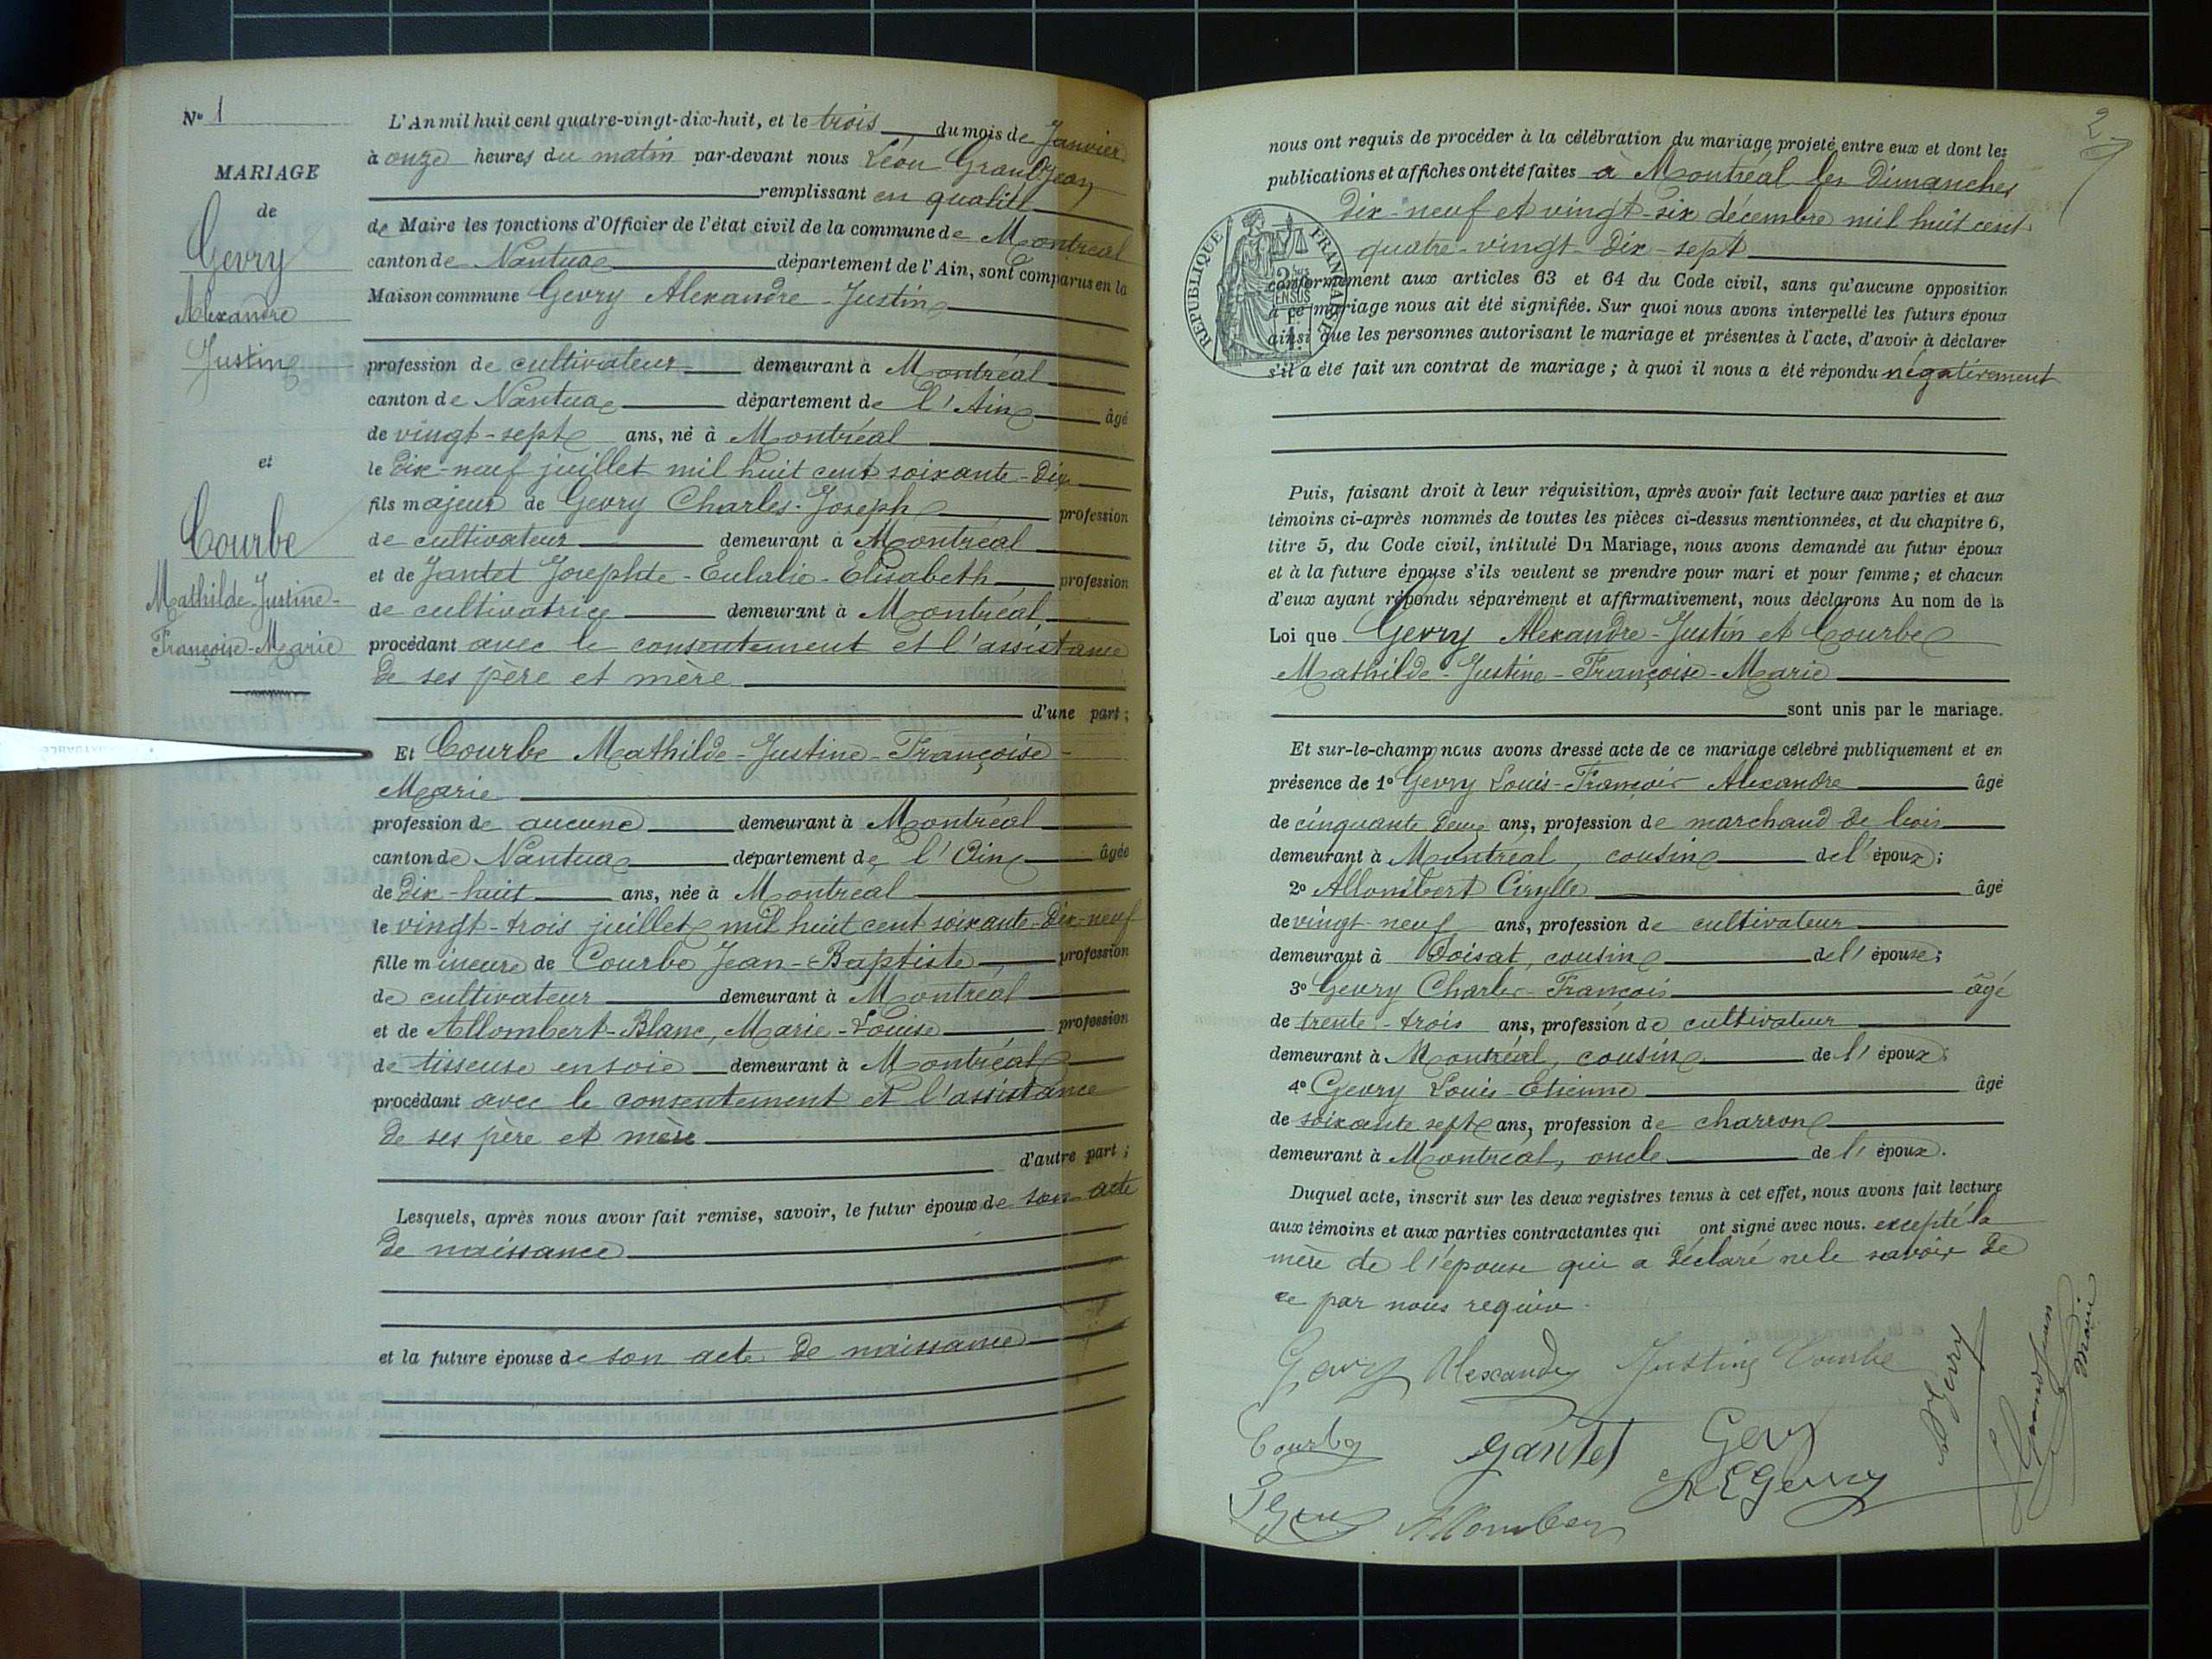 N° 1
MARIAGE
de
Gevry
Alexandre
Justin
et
Courbe
Mathilde-Justine-
Françoise-Marie
L'An mil huit cent quatre-vingt-dix-huit, et le trois du mois de Janvier
à onze heures du matin par-devant nous Léon Grandjean
remplissant en qualité
de Maire les fonctions d'Officier de l'état civil de la commune de Montréal
canton de Nantua département de l'Ain, sont comparus en la
Maison commune Gevry Alexandre-Justin
profession de cultivateur demeurant à Montréal
canton de Nantua département de l'Ain âgé
de vingt-sept ans, né à Montréal
le dix-neuf juillet mil huit cent soixante-dix
fils majeur de Gevry Charles-Joseph profession
de cultivateur demeurant à Montréal
et de Jantet Josephte-Eulalie-Elisabeth profession
de cultivatrice demeurant à Montréal,
procédant avec le consentement et l'assistance
de ses père et mère
d'une part;
Et Courbe Mathilde-Justine-Françoise-
Marie
profession de aucune demeurant à Montréal
canton de Nantua département de l'Ain âgée
de dix-huit ans, née à Montréal
le vingt-trois juillet mil huit cent soixante-dix-neuf
fille mineure de Courbe Jean-Baptiste profession
de cultivateur demeurant à Montréal
et de Allombert-Blanc, Marie-Louise profession
de tisseuse en soie demeurant à Montréal
procédant avec le consentement et l'assistance
de ses père et mère
d'autre part;
Lesquels, après nous avoir fait remise, savoir, le futur époux de son acte
de naissance
et la future épouse de son acte de naissance
2
nous ont requis de procéder à la célébration du mariage projeté entre eux et dont les
publications et affiches ont été faites à Montréal les Dimanches
dix-neuf et vingt-six décembre mil huit cent
quatre-vingt-dix-sept
RÉPUBLIQUE FRANÇAISE
conformément aux articles 63 et 64 du Code civil, sans qu'aucune opposition
à ce mariage nous ait été signifiée. Sur quoi nous avons interpellé les futurs époux
ainsi que les personnes autorisant le mariage et présentes à l'acte, d'avoir à déclarer
s'il a été fait un contrat de mariage; à quoi il nous a été répondu négativement
Puis, faisant droit à leur réquisition, après avoir fait lecture aux parties et aux
témoins ci-après nommés de toutes les pièces ci-dessus mentionnées, et du chapitre 6,
titre 5, du Code civil, intitulé Du Mariage, nous avons demandé au futur époux
et à la future épouse s'ils veulent se prendre pour mari et pour femme; et chacun
d'eux ayant répondu séparément et affirmativement, nous déclarons Au nom de la
Loi que Gevry Alexandre-Justin et Courbe
Mathilde-Justine-Françoise-Marie
sont unis par le mariage.
Et sur-le-champ nous avons dressé acte de ce mariage célébré publiquement et en
présence de 1° Gevry Louis-François Alexandre âgé
de cinquante deux ans, profession de marchand de bois
demeurant à Montréal, cousin de l'époux;
2° Allombert Cirylle âgé
de vingt-neuf ans, profession de cultivateur
demeurant à Voisat, cousin de l'épouse;
3° Gevry Charles-François âgé
de trente-trois ans, profession de cultivateur
demeurant à Montréal, cousin de l'époux;
4° Gevry Louis-Etienne âgé
de soixante sept ans, profession de charron
demeurant à Montréal, oncle de l'époux.
Duquel acte, inscrit sur les deux registres tenus à cet effet, nous avons fait lecture
aux témoins et aux parties contractantes qui ont signé avec nous. excepté la
mère de l'épouse qui a déclaré ne le savoir de
ce par nous requise.
Gevry Alexandre Justine Courbe
Courbe Jantet Gevry
L E Gevry
Gevry
Allombert
Grandjean
Maire